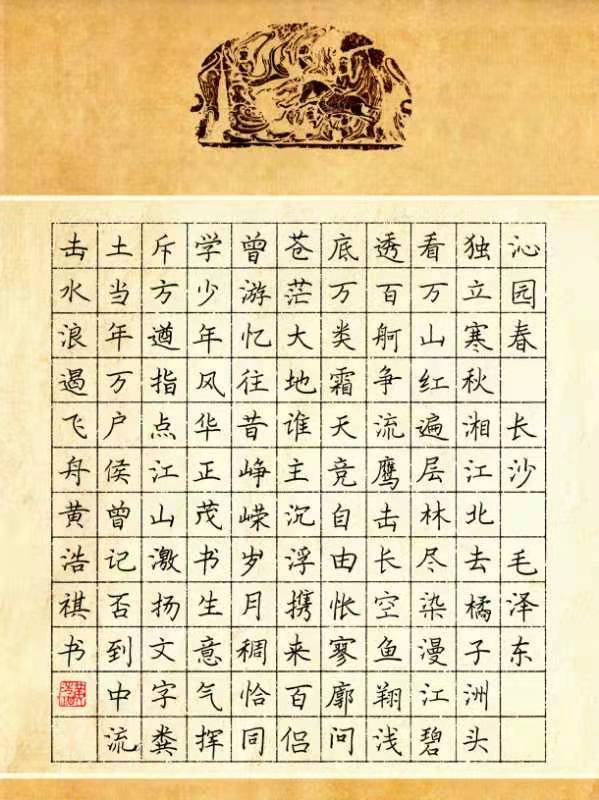 沁园春 长沙 毛泽东
独立寒秋湘江北去橘子洲头
看万山红遍层林尽染漫江碧
透百舸争流鹰击长空鱼翔浅
底万类霜天竞自由怅寥廓问
苍茫大地谁主沉浮携来百侣
曾游忆往昔峥嵘岁月稠恰同
学少年风华正茂书生意气挥
斥方遒指点江山激扬文字粪
土当年万户侯曾记否到中流
击水浪遏飞舟黄浩祺书